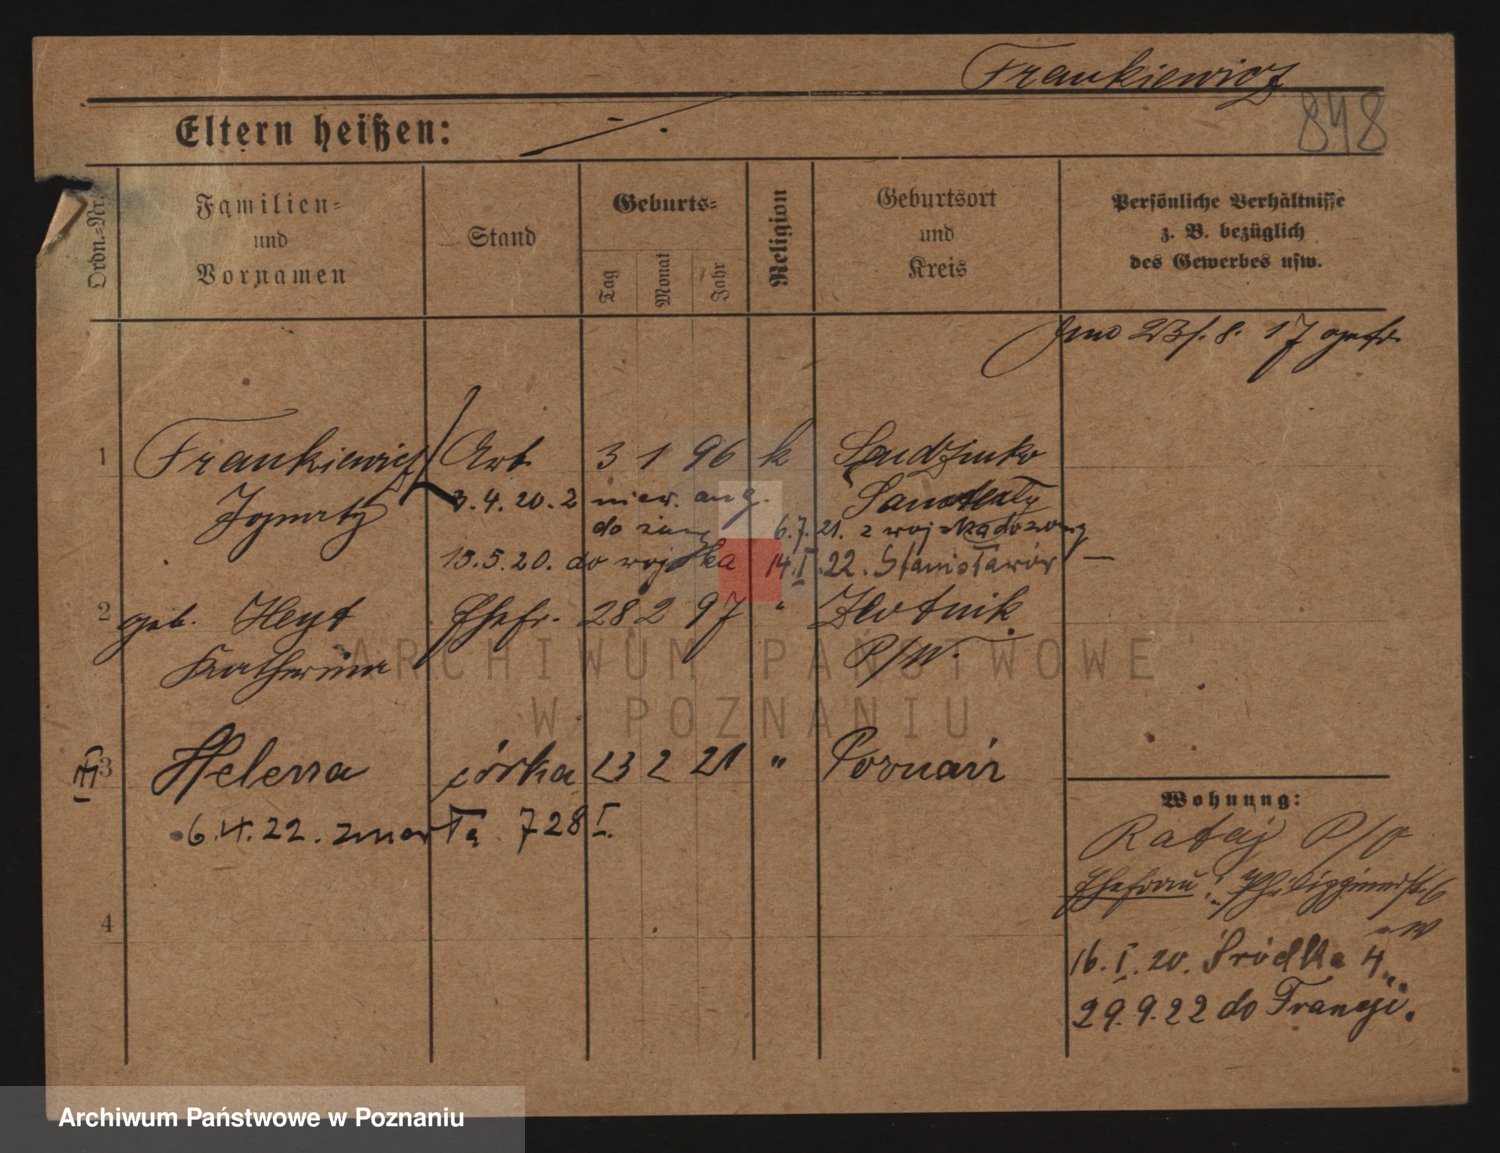 Frankiewicz
848
Eltern heißen:
Ordn.-Nr.
Familien-
und
Vornamen
Stand
Geburts-
Tag
Monat
Jahr
Religion
Geburtsort
und
Kreis
Persönliche Verhältnisse
z. B. bezüglich
des Gewerbes usw.
23/.8. 17
1 Frankiewicz Arb. 3 1 96 k
Ignatz
3.4.20. z niew. ang.
do żony 6.7.21. z wojska do żony
15.5.20. do wojska 14.I.22. Stanisławów
2 geb. Heyt Ehefr. 28 2 97 " Zlotnik
Katherina P/W.
3 Helena córka 23 2 21 " Poznań
6.4.22. zmarła 728 I.
4
Wohnung:
Rataj P/O
Ehefrau: Philippinerstr. 6
16.I.20. Śródka 4
29.9.22 do Francji.
ARCHIWUM PAŃSTWOWE
W POZNANIU
Archiwum Państwowe w Poznaniu